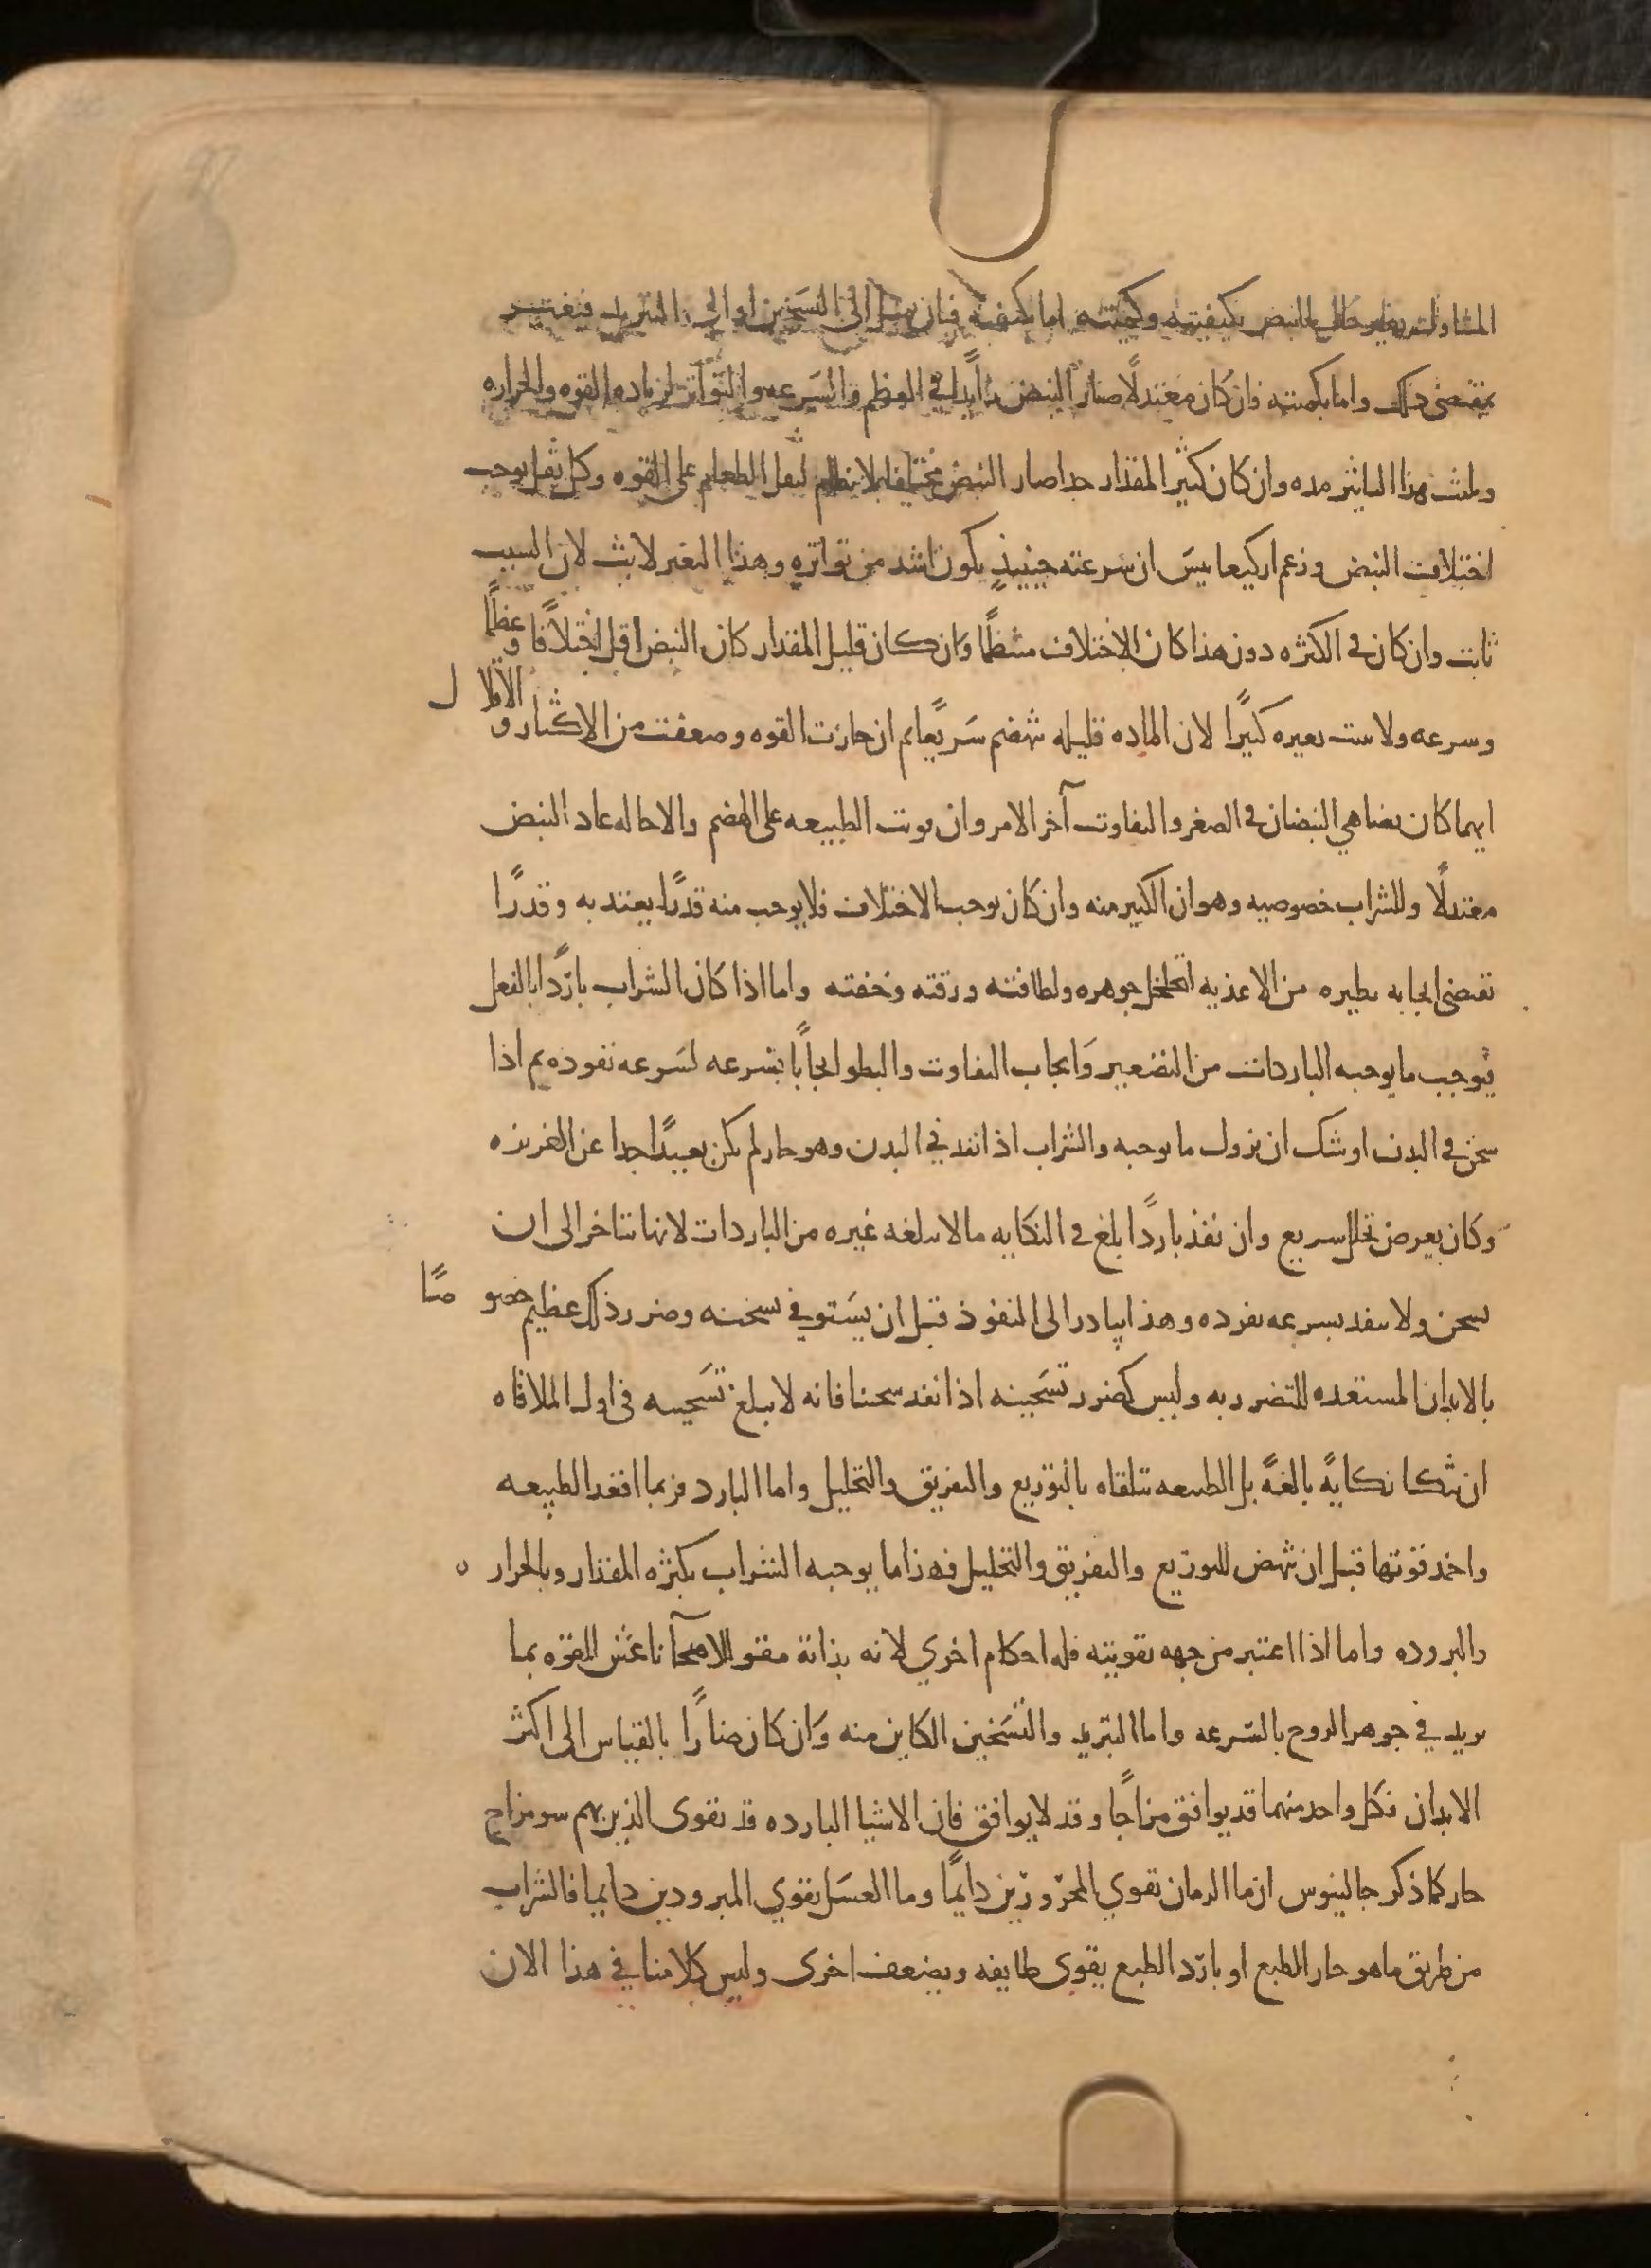 المتناولات يغير حال النبض بكيفيته وكميته اما بكيفيته فبان يميل الى التسخين او الى التبريد فيتغير
بمقتضى ذلك واما بكميته فان كان معتدلًا صار النبض زايدا في العظم والسرعه والتواتر لزياده القوه والحراره
ويلبث هذا التاثير مده وان كان كثير المقدار جدا صار النبض مختلفا بلا نظام لثقل الطعام على القوه وكل ثقل يوجب
اختلاف النبض وزعم اركيغانيس ان سرعته حينيذٍ يكون اشد من تواتره وهذا التغير لابث لان السبب
ثابت وان كان في الكثره دون هذا كان الاختلاف منتظمًا وان كان قليل المقدار كان النبض اقل اختلافا وعظمًا
وسرعه ولا يثبت تغيره كثيرًا لان الماده قليله تنهضم سريعًا ثم ان خارت القوه وضعفت من الاكثار و الاقلال
ايهما كان تضاهي النبضان في الصغر والتفاوت آخر الامر وان قويت الطبيعه على الهضم والاحاله عاد النبض
معتدلًا وللشراب خصوصيه وهو ان الكثير منه وان كان يوجب الاختلاف فلا يوجب منه قدرًا يعتد به وقدرًا
يقتضى ايجابه نظيره من الاغذيه لتخلخل جوهره ولطافته ورقته وخفته واما اذا كان الشراب باردًا بالفعل
فيوجب ما يوجبه الباردات من التصغير وايجاب التفاوت والبطو ايجابًا بسرعه لسرعه نفوذه ثم اذا
سخن في البدن اوشك ان يزول ما يوجبه والشراب اذا نفذ في البدن وهو حار لم يكن بعيدًا جدا عن الغريزه
وكان يعرض تحلل سريع وان نفذ باردًا بلغ في النكايه ما لا يبلغه غيره من الباردات لانها تتاخر الى ان
يسخن ولا ينفذ بسرعه نفوذه وهذا يبادر الى النفوذ قبل ان يستوفي تسخينه وضرر ذلك عظيم خصوصًا
بالابدان المستعده للتضرر به وليس كضرر تسخينه اذا نفذ سخنا فانه لا يبلغ تسخينه في اول الملاقاه
ان ينكا نكايهً بالغهً بل الطبيعه تتلقاه بالتوزيع والتفريق والتحليل واما البارد فربما اقعد الطبيعه
واخمد قوتها قبل ان تنهض للتوزيع والتفريق والتحليل فهذا ما يوجبه الشراب بكثره المقدار وبالحراره
والبروده واما اذا اعتبر من جهه تقويته فله احكام اخري لانه بذاته مقو للاصحآ ناعش للقوه بما
يزيد في جوهر الروح بالسرعه واما التبريد والتسخين الكاين منه وان كان ضارًا بالقياس الى اكثر
الابدان فكل واحد منهما قد يوافق مزاجًا وقد لا يوافق فان الاشيا البارده قد تقوى الذين بهم سو مزاج
حار كما ذكر جالينوس ان ما الرمان تقوي المحرورين دايمًا وما العسل تقوي المبرودين دايما فالشراب
من طريق ما هو حار الطبع او بارد الطبع يقوى طايفه ويضعف اخرى وليس كلامنا في هذا الان